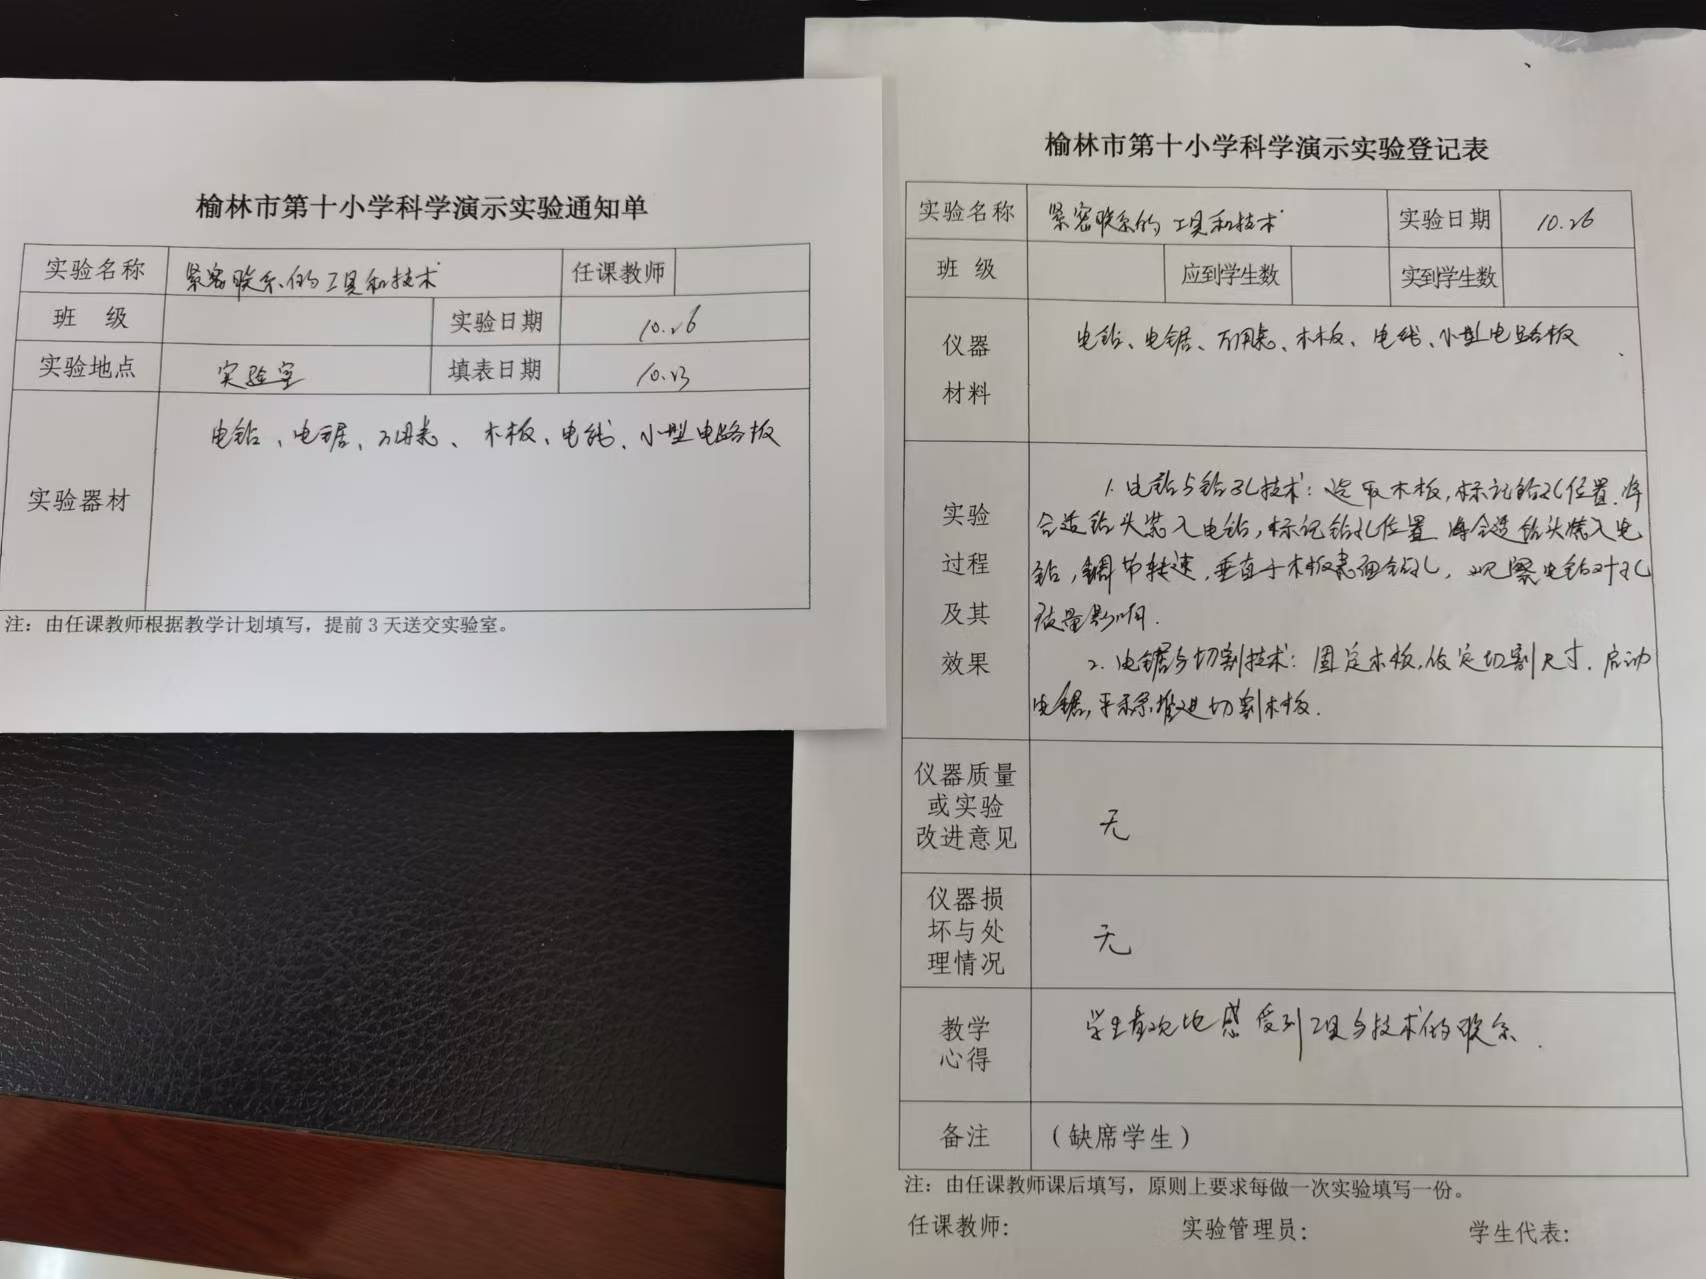 榆林市第十小学科学演示实验通知单
实验名称 紧密联系的工具和技术 任课教师
班 级 实验日期 10.26
实验地点 实验室 填表日期 10.23
实验器材 电钻、电锯、万用表、木板、电线、小型电路板
注：由任课教师根据教学计划填写，提前3天送交实验室。
榆林市第十小学科学演示实验登记表
实验名称 紧密联系的工具和技术 实验日期 10.26
班 级 应到学生数 实到学生数
仪器
材料
电钻、电锯、万用表、木板、电线、小型电路板
实验
过程
及其
效果
1. 电钻与钻孔技术：选取木板，标记钻孔位置.将
合适钻头装入电钻，标记钻孔位置 将合适钻头装入电
钻，调节转速，垂直于木板表面钻孔，观察电钻对孔
质量影响.
2. 电锯与切割技术：固定木板，设定切割尺寸.启动
电锯，平稳推进切割木板.
仪器质量
或实验
改进意见
无
仪器损
坏与处
理情况
无
教学
心得
学生直观地感受到工具与技术的联系.
备注 （缺席学生）
注：由任课教师课后填写，原则上要求每做一次实验填写一份。
任课教师： 实验管理员： 学生代表：